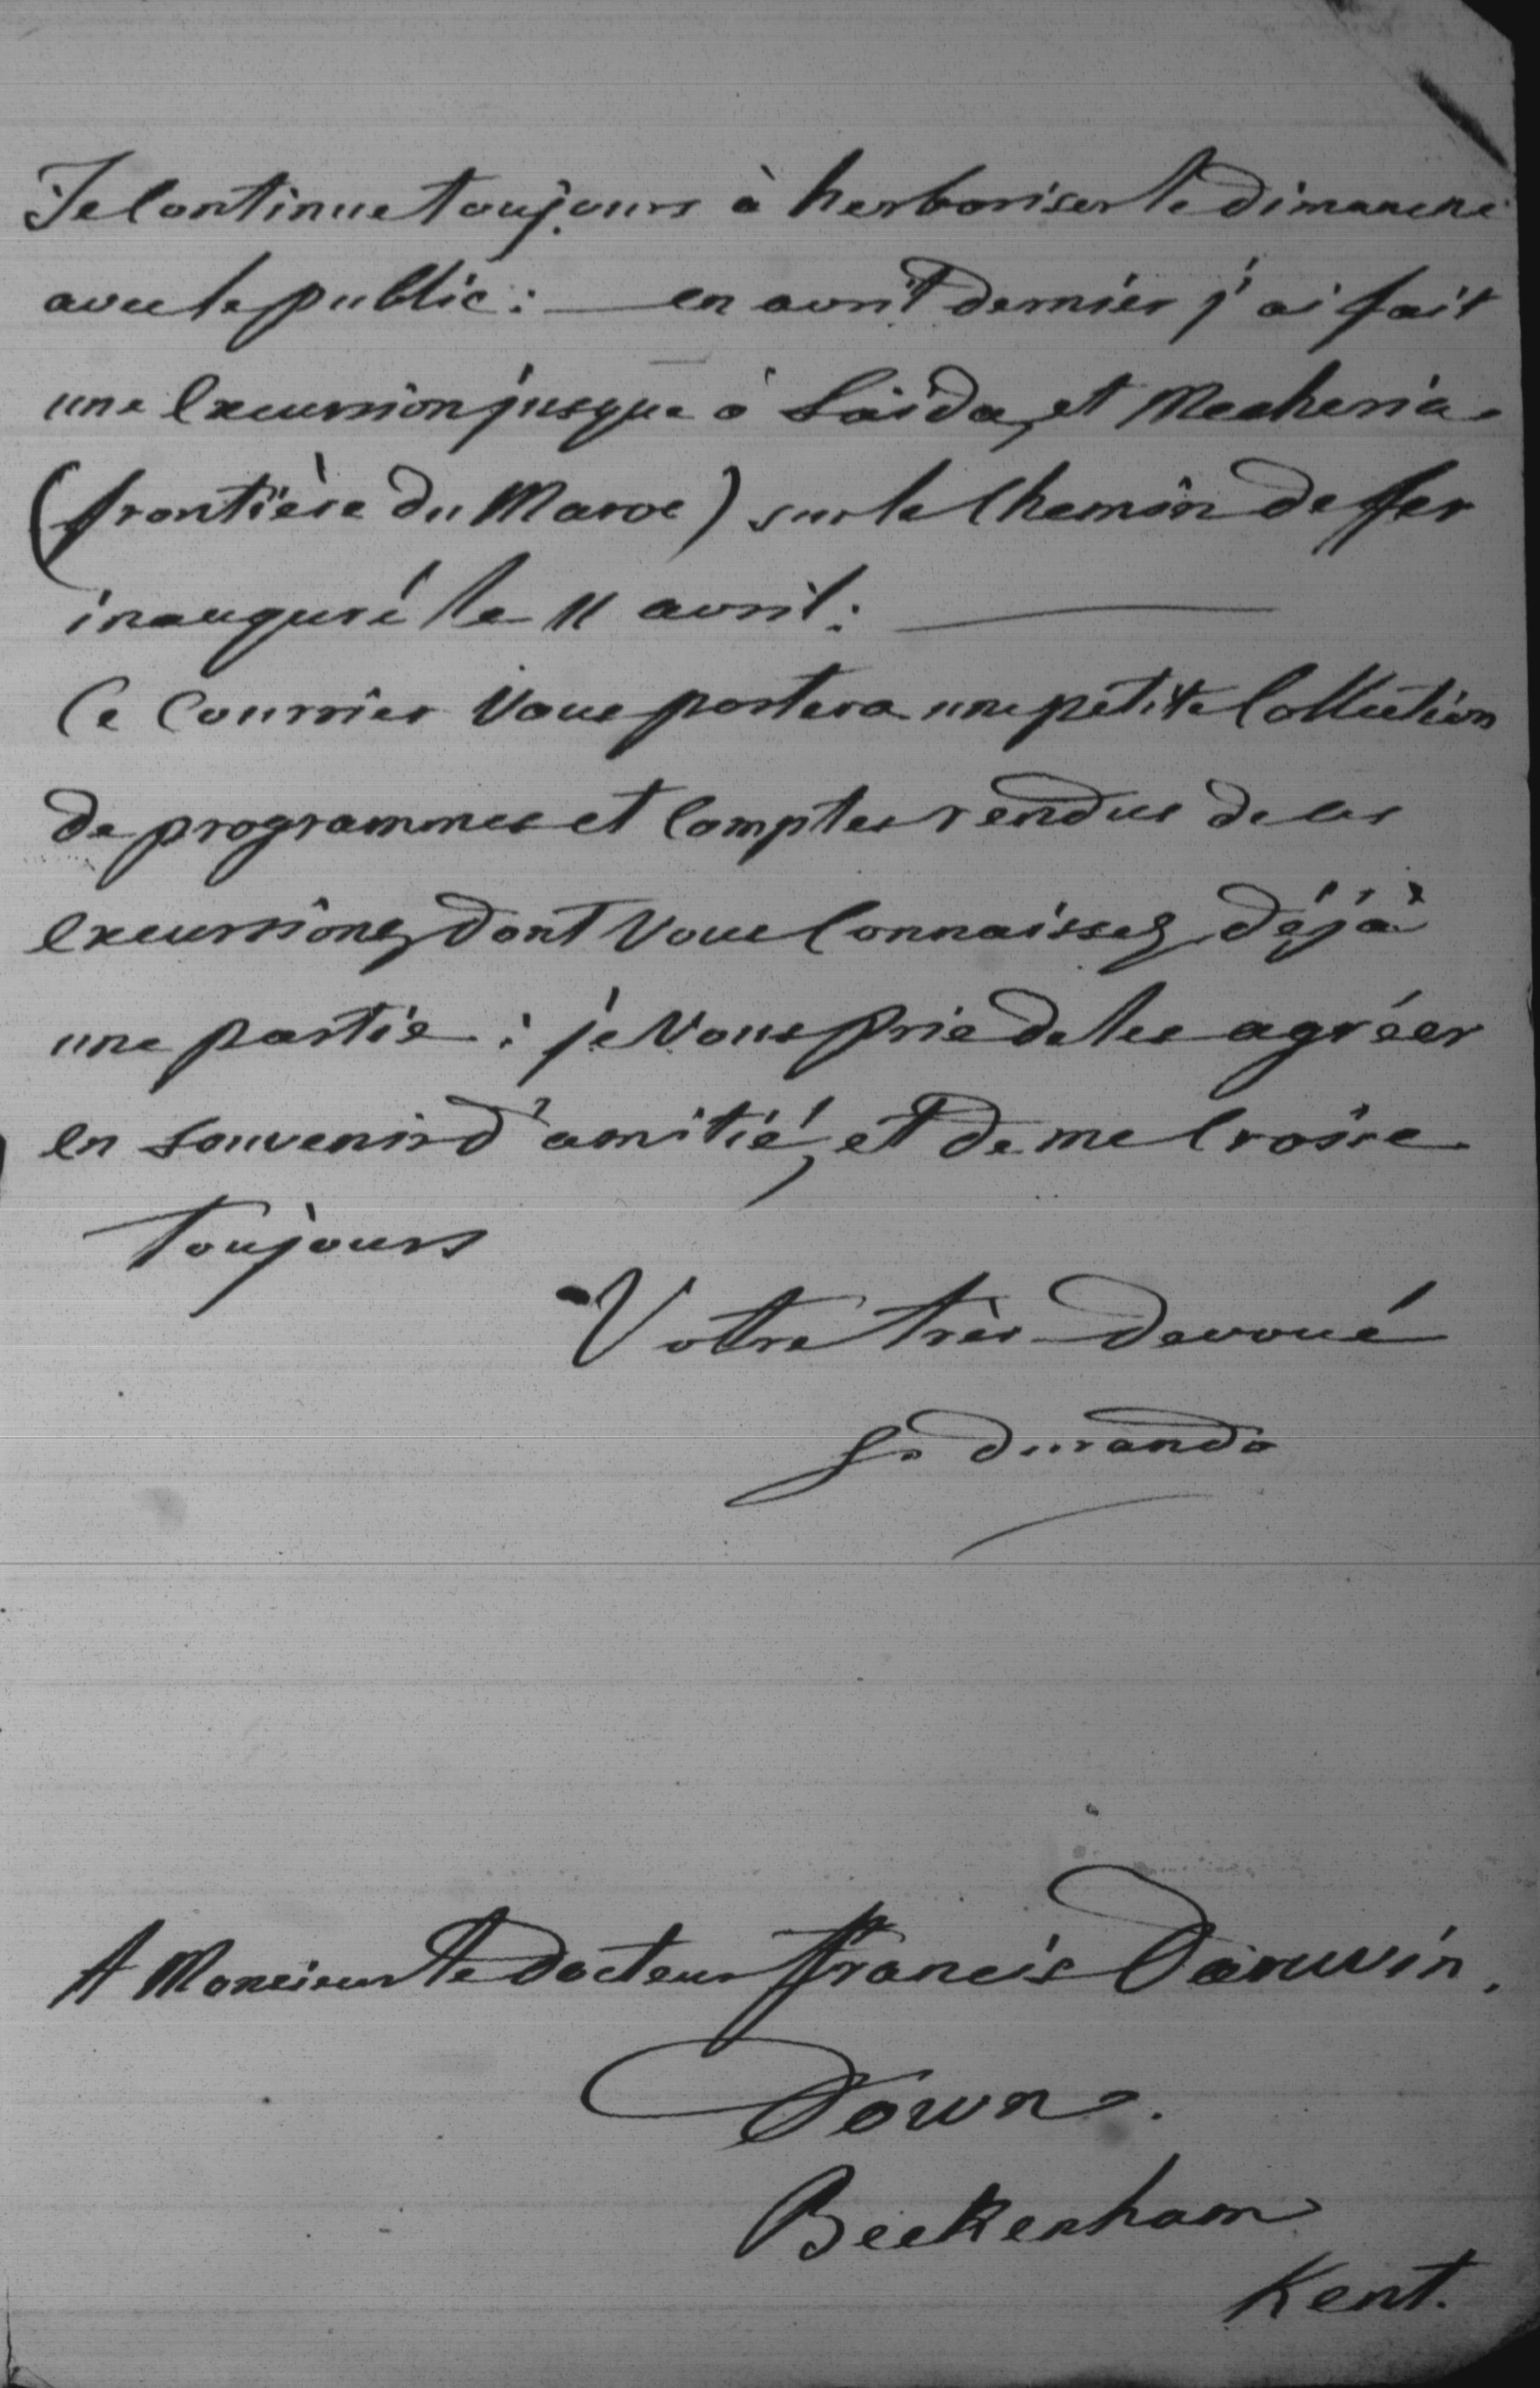 Je continue toujours à herboriser le dimanche
avec le public : — en avril dernier j'ai fait
une excursion jusque à Saïda, et Mecheria
(frontière du Maroc) sur le chemin de fer
inauguré le 11 avril : —
Ce courrier vous portera une petite collection
de programmes et comptes rendus de ces
excursions, dont vous connaissez déjà
une partie : je vous prie de les agréer
en souvenir d'amitié, et de me croire
toujours
Votre très devoué
G. Durando
A Monsieur le docteur Francis Darwin.
Down.
Beckenham
Kent.